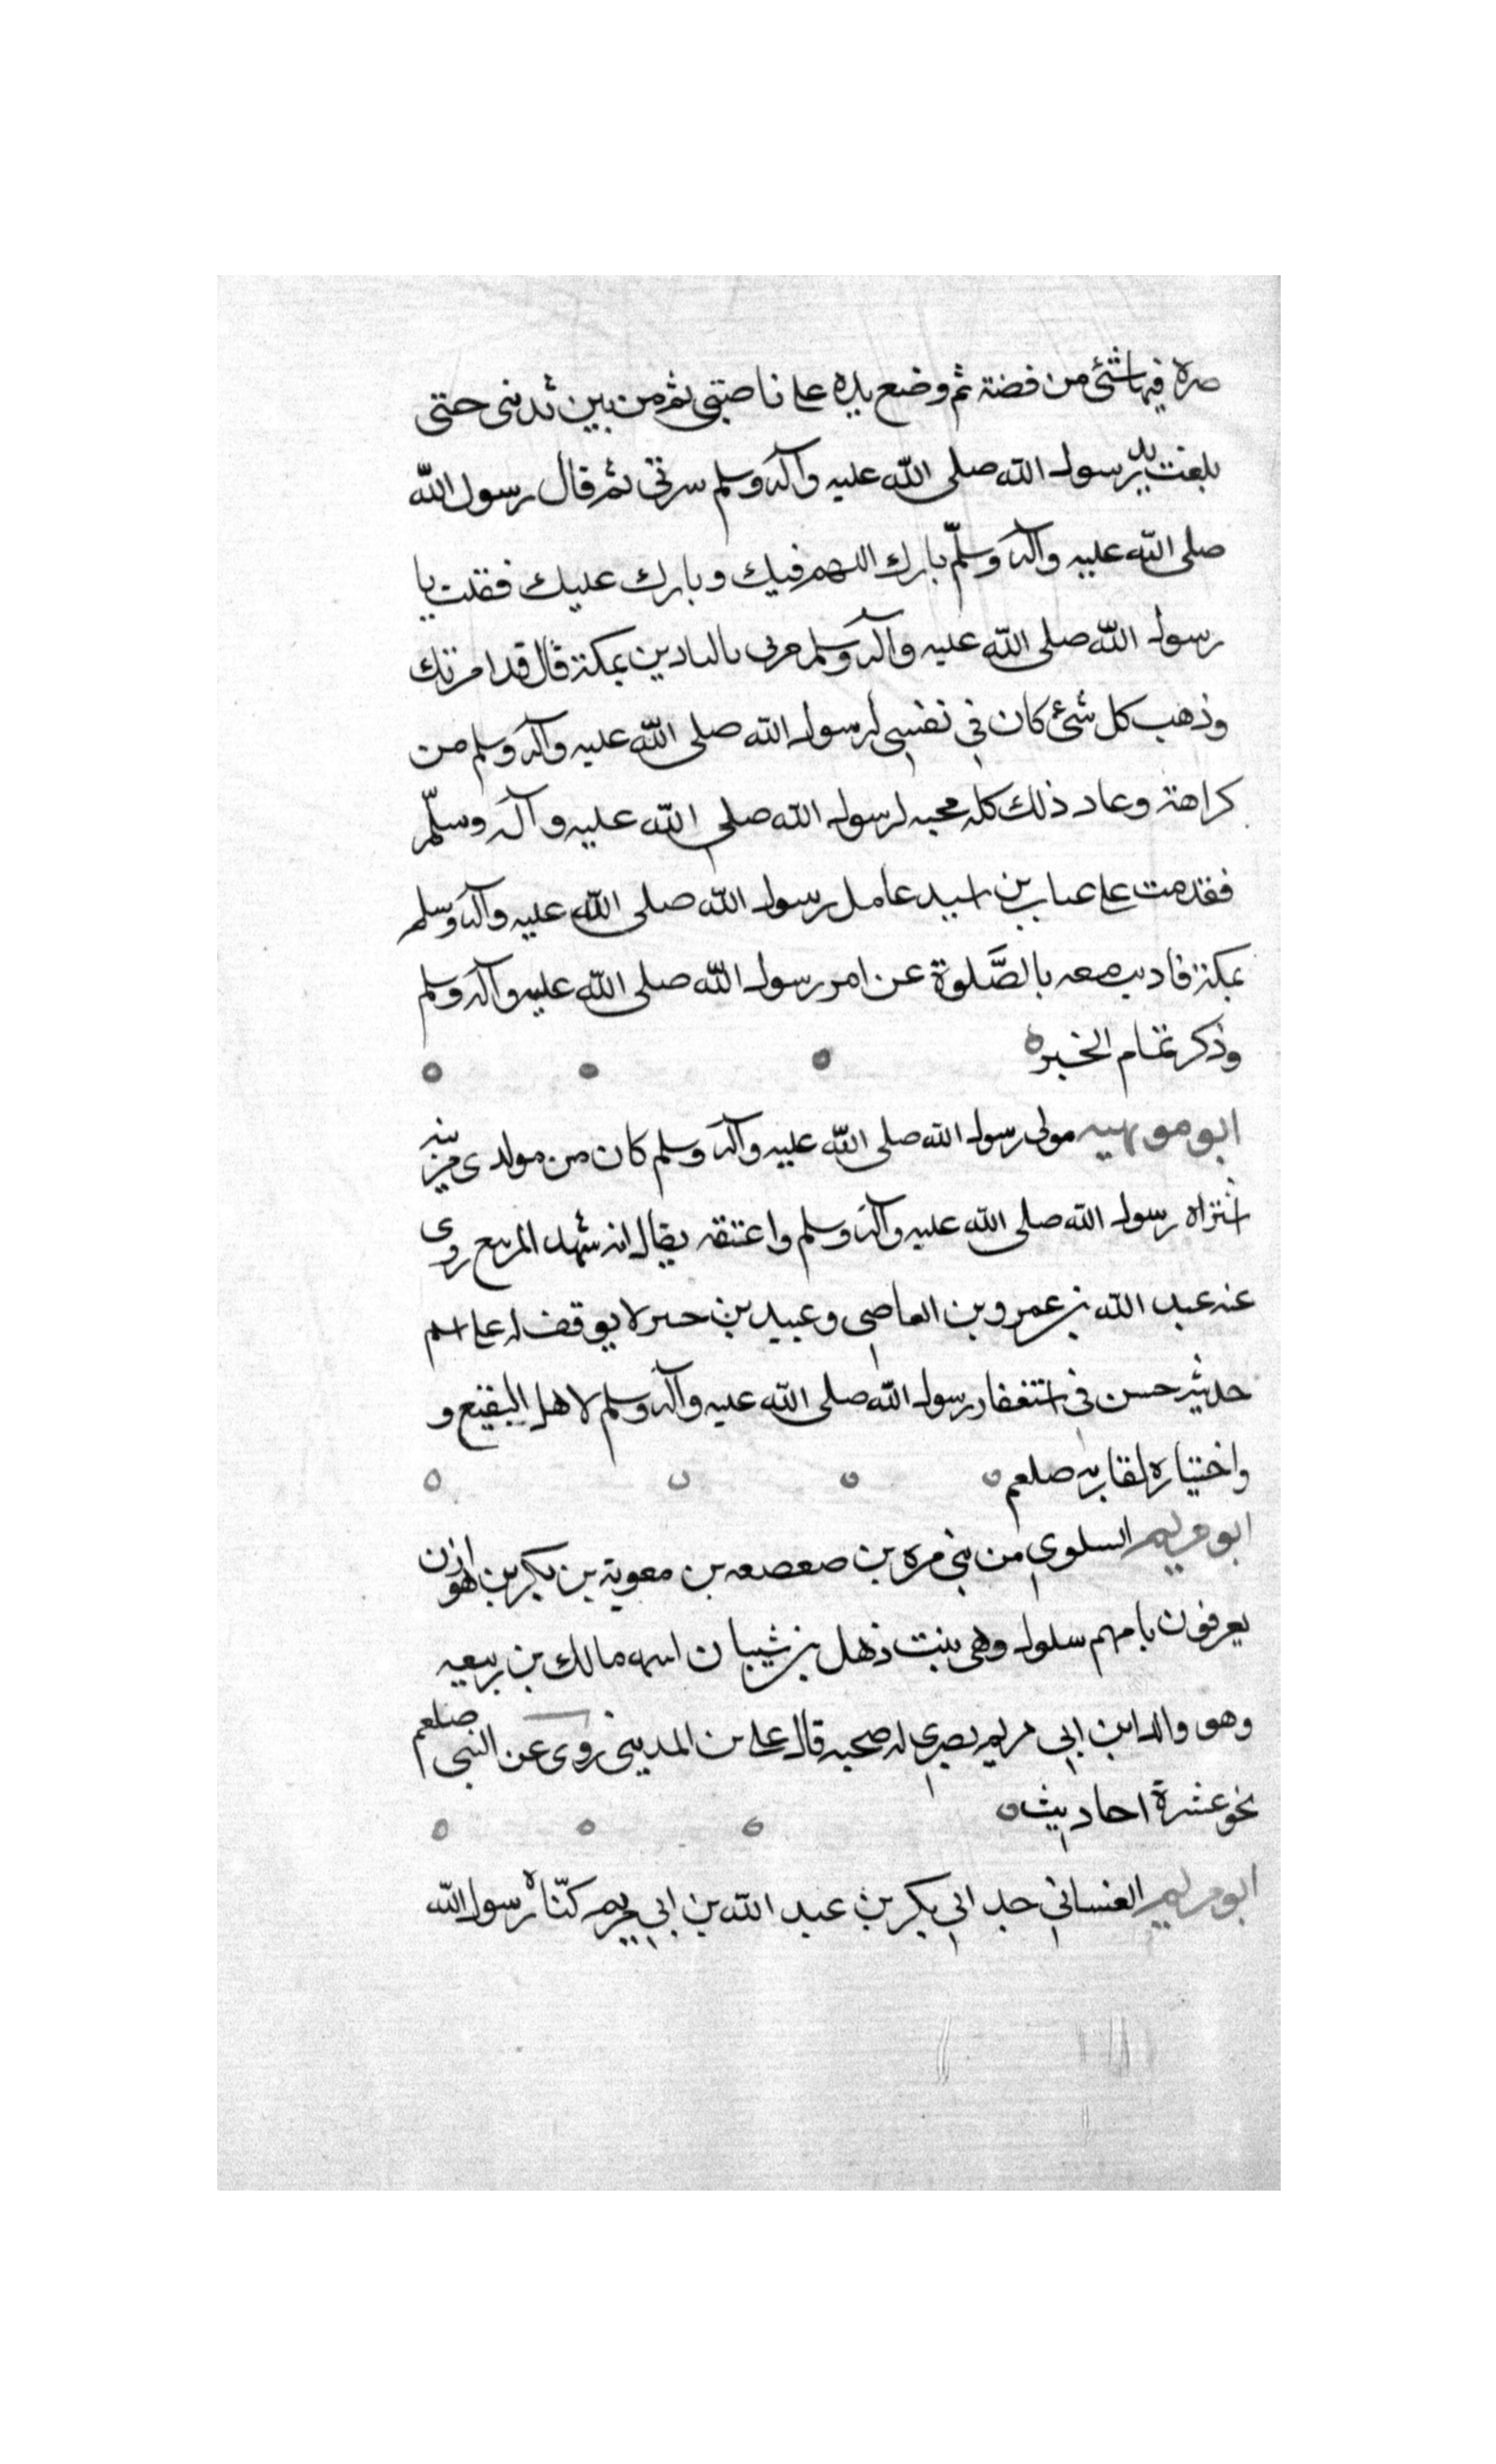 صرة فيها شئ من فضة ثم وضع يده على ناصيتي ثم من بين ثديي حتى
بلغت يد رسول الله صلى الله عليه وآله وسلم سرتي ثم قال رسول الله
صلى الله عليه وآله وسلّم بارك اللهم فيك وبارك عليك فقلت يا
رسول الله صلى الله عليه وآله وسلم مرني بالتادين بمكة قال قد امرتك
وذهب كل شئ كان في نفسي لرسول الله صلى الله عليه وآله وسلم من
كراهة وعاد ذلك كله محبه لرسول الله صلى الله عليه وآله وسلّم
فقدمت على عتاب بن اسيد عامل رسول الله صلى الله عليه وآله وسلم
بمكة فاديت معه بالصَّلوة عن امر رسول الله صلى الله عليه وآله وسلم
وذكر تمام الخبر ه
ابو مويهبه مولى رسول الله صلى الله عليه وآله وسلم كان من مولدي مزينه
اشتراه رسول الله صلى الله عليه وآله وسلم واعتقه يقال انه شهد المريسع روى
عنه عبد الله بن عمرو بن العاصي وعبيد بن حسر لا يوقف له على اسم
حديثه حسن في استغفار رسول الله صلى الله عليه وآله وسلم لاهل البقيع و
واختياره لقا ربه صلعم
ابو مريم السلولي من بني مره بن صعصعه بن معوية بن بكر بن هوازن
يعرفون بامهم سلول وهي بنت ذهل بن شيبان اسمه مالك بن ربيعه
وهو والد ابن ابي مريم بصري له صحبه قال علي بن المديني روى عن النبي صلعم
نحو عشرة احاديث
ابو مريم الغساني جد ابي بكر بن عبد الله بن ابي مريم رسول الله